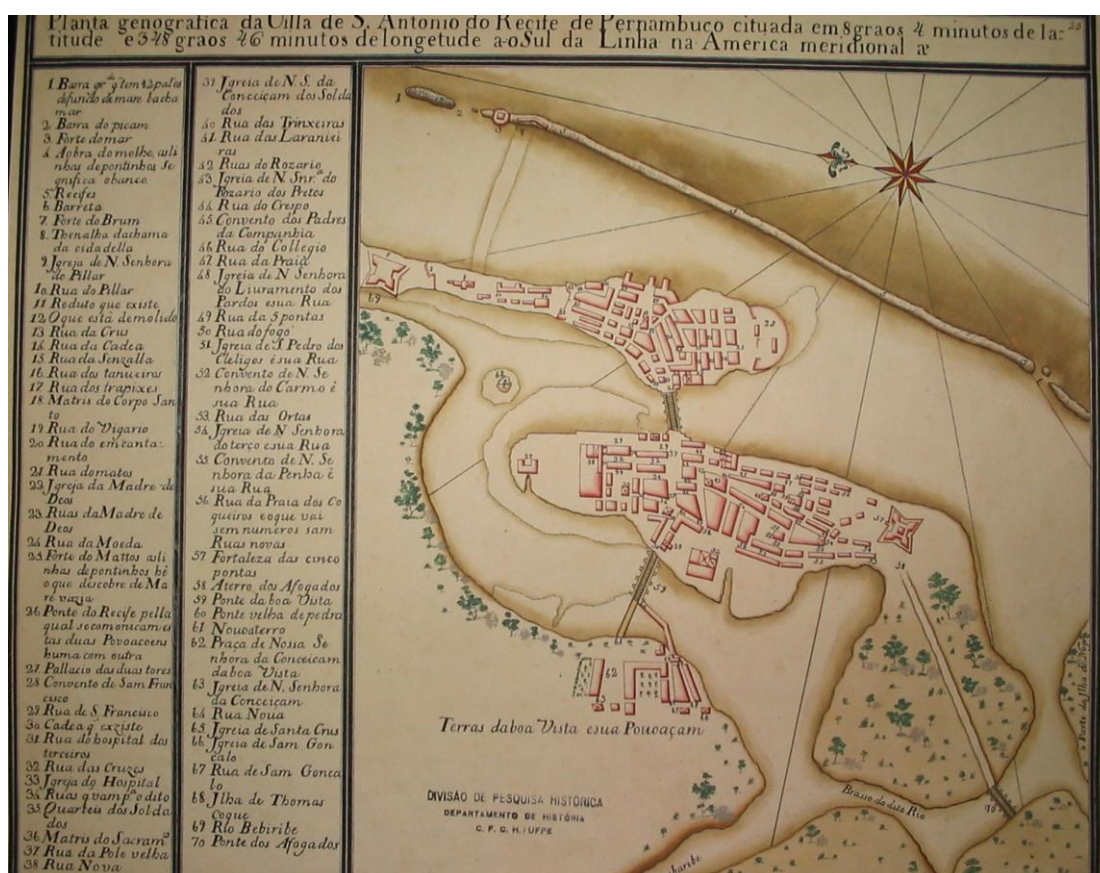 Planta genografica da Uilla de S. Antonio do Recife de Pernambuco cituada em 8 graos 4 minutos de la=
titude e 348 graos 46 minutos de longetude ao Sul da Linha na America meridional æ
25
1 Barra grde q tem 42 palos
defundo de mare bacha
mar
2 Barra do picam
3 Forte do mar
4 Aobra do molhe, asli
nhas depontinhos Se
gnifica obanco
5 Recifes
6 Barreta
7 Forte do Brum
8 Thenalha dachama
da cidadella
9 Igreja de N. Senhora
do Pillar
10 Rua do Pillar
11 Reduto que existe
12 O que está demolido
13 Rua da Crus
14 Rua da Cadea
15 Rua da Senzalla
16 Rua dos tanueiros
17 Rua dos trapixes
18 Matris do Corpo San
to
19 Rua do Vigario
20 Rua do emcanta=
mento
21 Rua do matos
22 Igreja da Madre de
Deos
23 Ruas da Madre de
Deos
24 Rua da Moeda
25 Forte do Mattos asli
nhas depontinhos hé
o que descobre de Ma
ré vazia
26 Ponte do Recife pella
qual secomonicam es
tas duas Povoacoens
huma com outra
27 Pallacio das duas tores
28 Convento de Sam Fran
cisco
29 Rua de S. Francisco
30 Cadea q exziste
31 Rua do hospital dos
terceiros
32 Rua das Cruzes
33 Igreja do Hospital
34 Ruas q vam pa o dito
35 Quarteis dos Solda
dos
36 Matris do Sacramto
37 Rua da Pole velha
38 Rua Nova
39 Igreia de N. S. da
Conceiçam dos Solda
dos
40 Rua das Trinxeiras
41 Rua das Laranxei
ras
42 Ruas do Rozario
43 Igreia de N. Snr.a do
Rozario dos Pretos
44 Rua do Crespo
45 Convento dos Padres
da Companhia
46 Rua do Collegio
47 Rua da Praia
48 Igreia de N Senhora
do Liuramento dos
Pardos esua Rua
49 Rua da 5 pontas
50 Rua do fogo
51 Igreia de S. Pedro dos
Cleligos é sua Rua
52 Convento de N. Se
nhora do Carmo é
sua Rua
53 Rua das Ortas
54 Igreia de N Senhora
do terço esua Rua
55 Convento de N. Se
nhora da Penha é
sua Rua
56 Rua da Praia dos Co
queiros eoque vai
sem numeros sam
Ruas novas
57 Fortaleza das cinco
pontas
58 Aterro dos Afogados
59 Ponte da boa Vista
60 Ponte velha depedra
61 Nouoaterro
62 Praça de Nossa Se
nhora da Conceicam
daboa Vista
63 Igreia de N. Senhora
da Conceiçam
64 Rua Noua
65 Igreia de Santa Crus
66 Igreia de Sam Gon
calo
67 Rua de Sam Gonca
lo
68 Ilha de Thomas
Coque
69 Rio Bebiribe
70 Ponte dos Afogados
Terras daboa Vista esua Pouoaçam
DIVISÃO DE PESQUISA HISTÓRICA
DEPARTAMENTO DE HISTÓRIA
C. F. C. H. / UFPE
Brasso do dito Rio